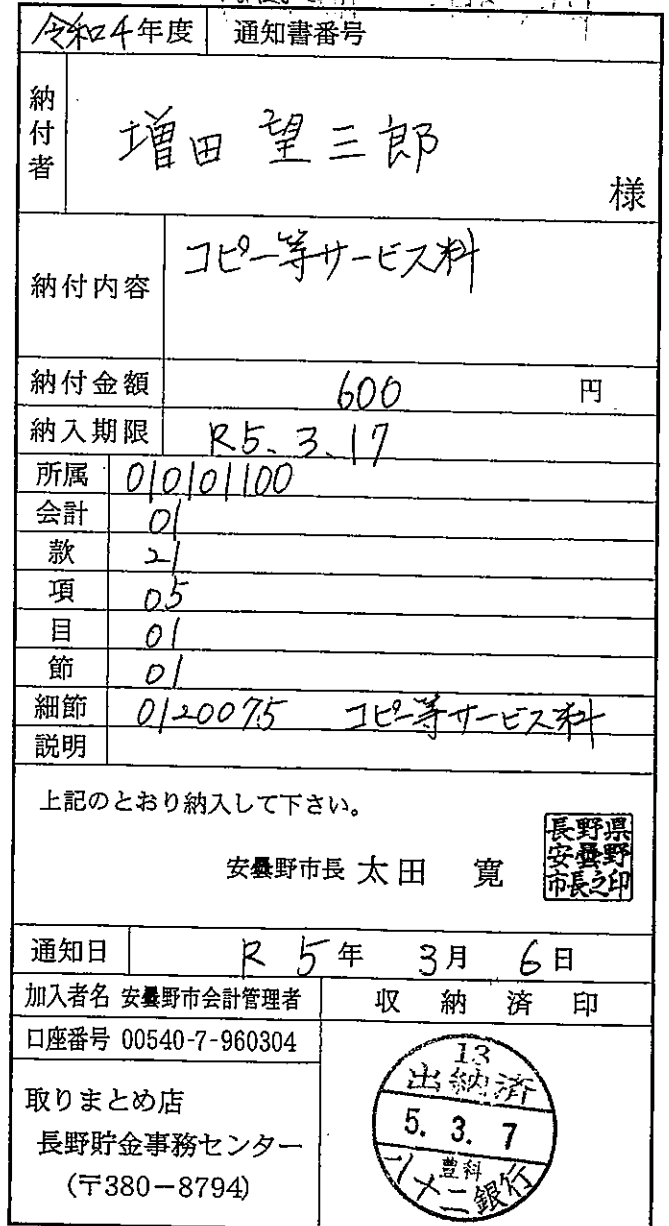 令和4年度 通知書番号
納付者 増田 望三郎 様
納付内容 コピー等サービス料
納付金額 600 円
納入期限 R5.3.17
所属 010101100
会計 01
款 21
項 05
目 01
節 01
細節 0120075 コピー等サービス料
説明
上記のとおり納入して下さい。
安曇野市長 太田 寛
長野県
安曇野
市長之印
通知日 R 5年 3月 6日
加入者名 安曇野市会計管理者 収納済印
口座番号 00540-7-960304
取りまとめ店
長野貯金事務センター
(〒380-8794)
13
出納済
5. 3. 7
豊科
八十二銀行